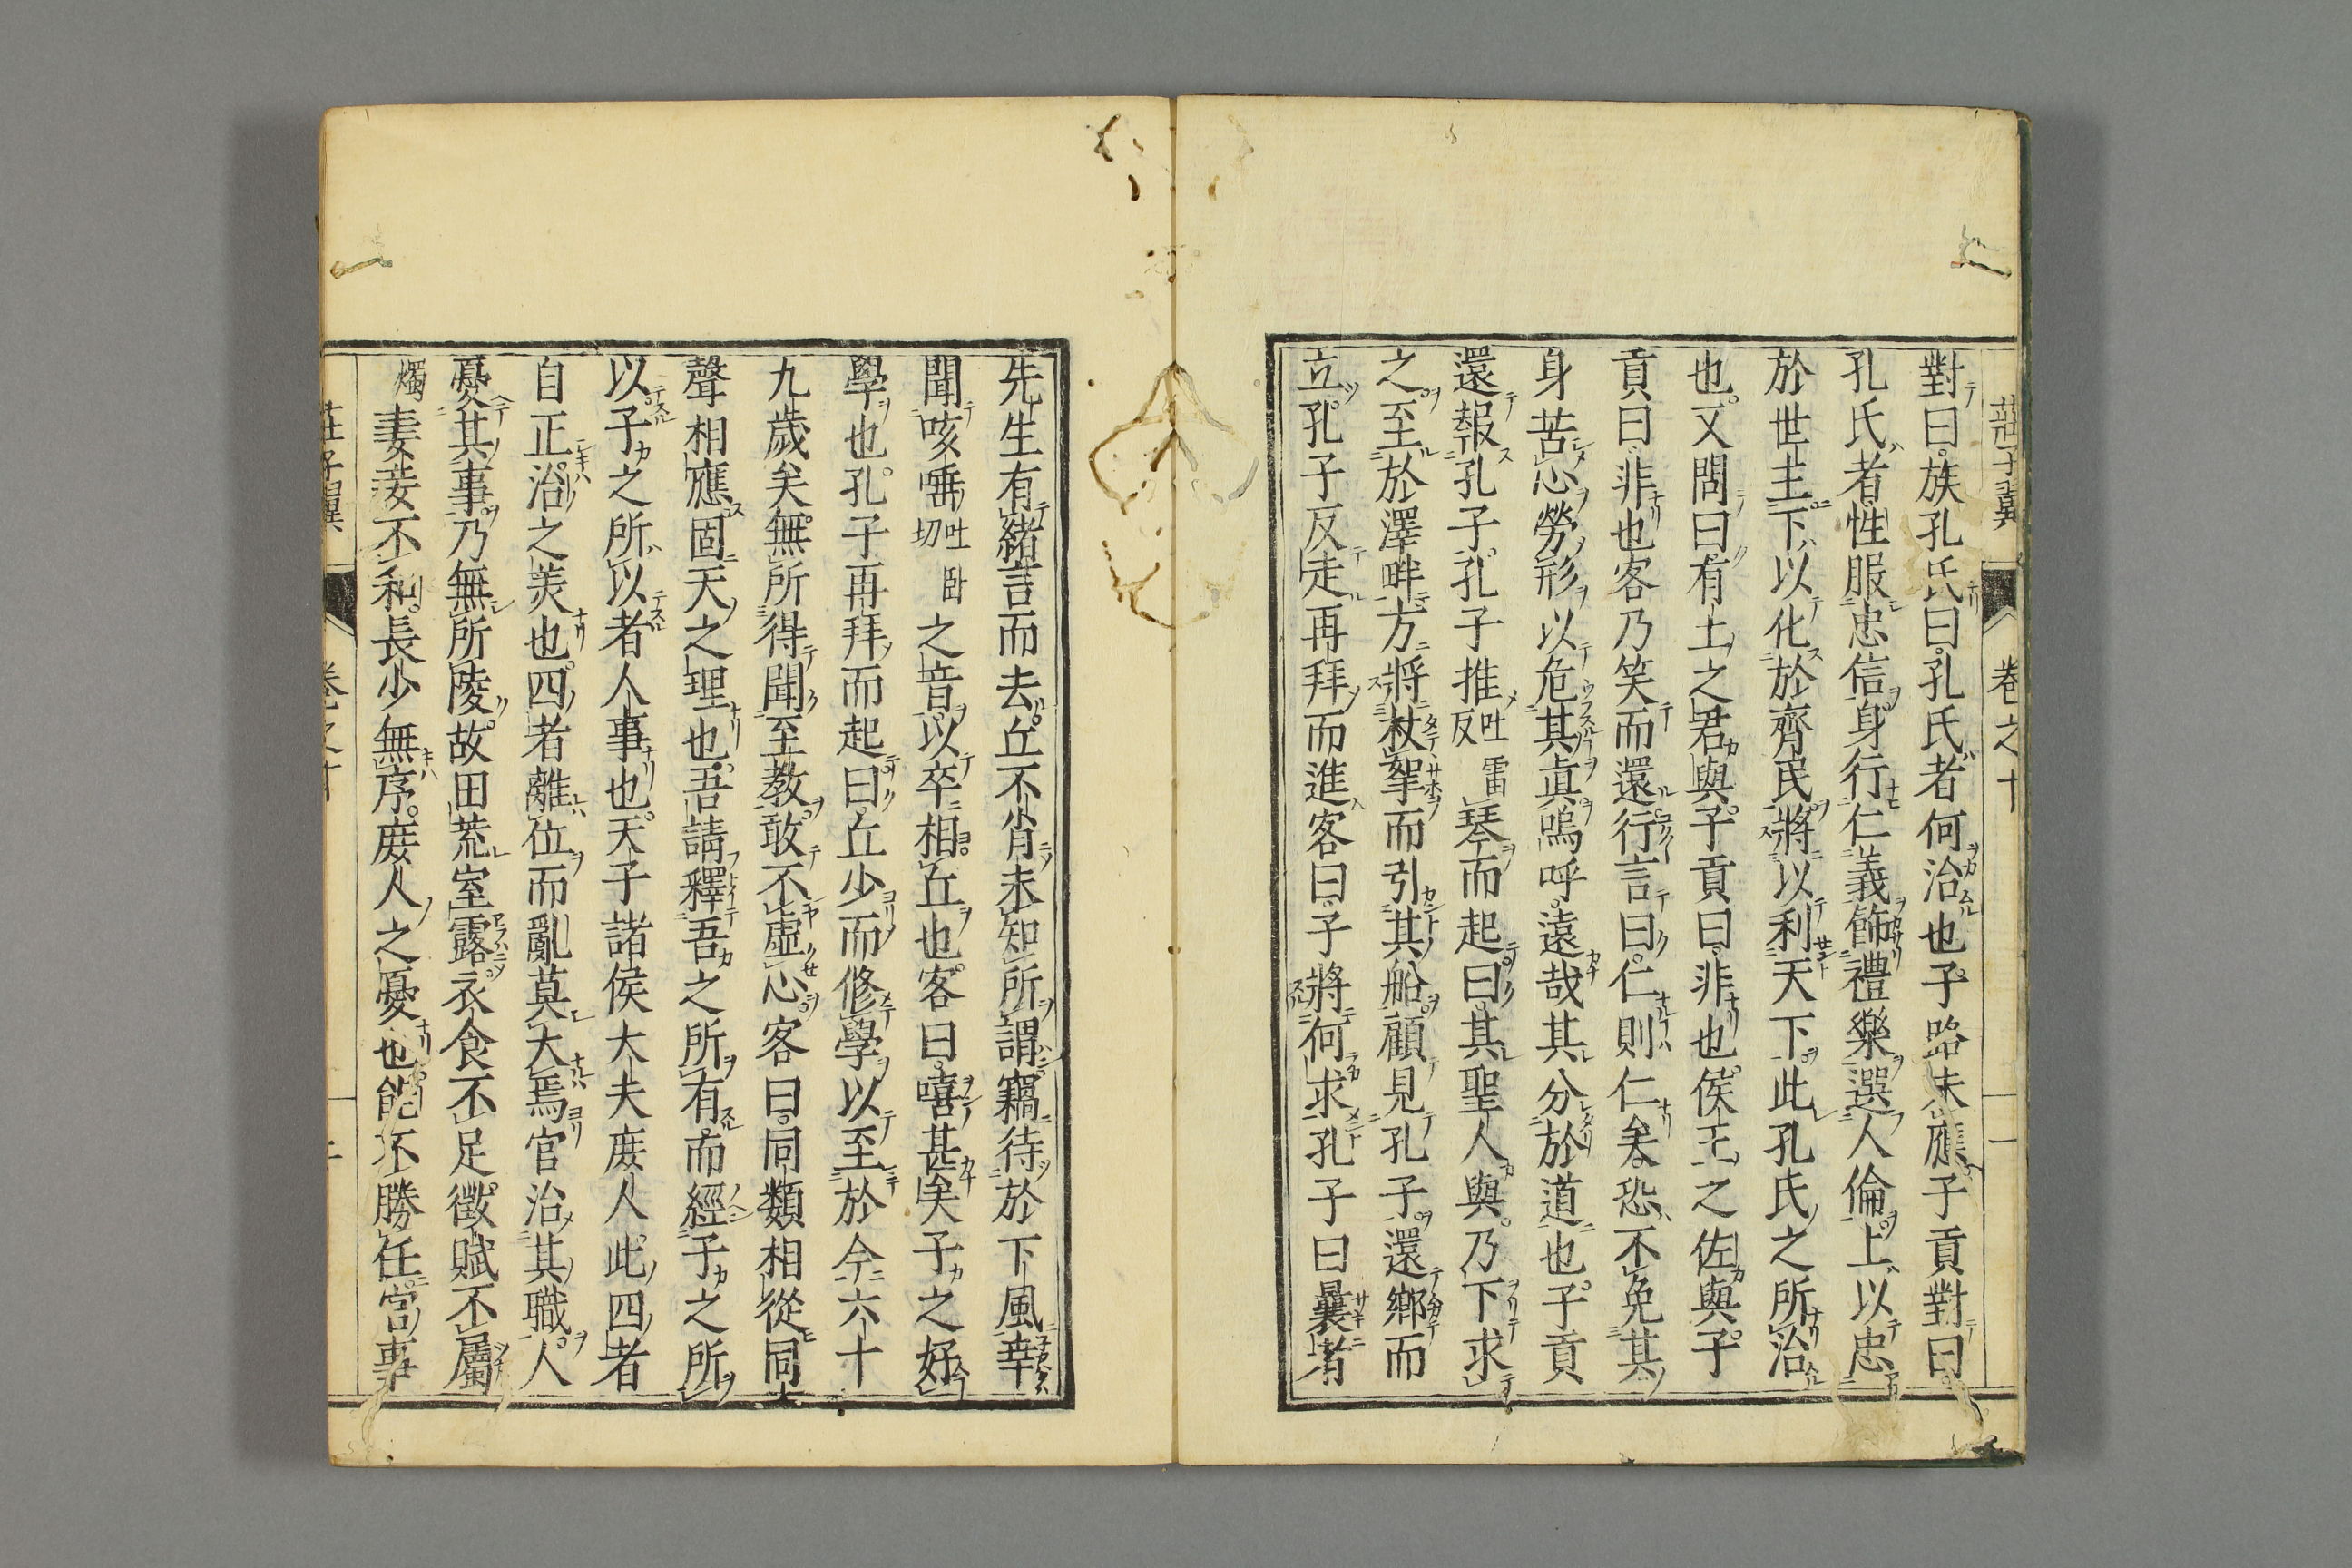 莊子翼 卷之十 一
對曰族孔氏曰孔氏者何治也子路未應子貢對曰
孔氏者性服忠信身行仁義飾禮樂選人倫上以忠
於世主下以化於齊民將以利天下此孔氏之所治
也又問曰有土之君與子貢曰非也侯王之佐與子
貢曰非也客乃笑而還行言曰仁則仁矣恐不免其
身苦心勞形以危其真嗚呼遠哉其分於道也子貢
還報孔子孔子推吐雷反琴而起曰其聖人與乃下求
之至於澤畔方將杖拏而引其船顧見孔子還鄉而
立孔子反走再拜而進客曰子將何求孔子曰曩者
先生有緒言而去丘不肖未知所謂竊待於下風幸
聞咳唾吐臥切之音以卒相丘也客曰嘻甚矣子之好
學也孔子再拜而起曰丘少而修學以至於今六十
九歲矣無所得聞至教敢不虛心客曰同類相從同
聲相應固天之理也吾請釋吾之所有而經子之所
以子之所以者人事也天子諸侯大夫庶人此四者
自正治之美也四者離位而亂莫大焉官治其職人
憂其事乃無所陵故田荒室露衣食不足徵賦不屬
燭妻妾不和長少無序庶人之憂也能不勝任官事
莊子翼 卷之十